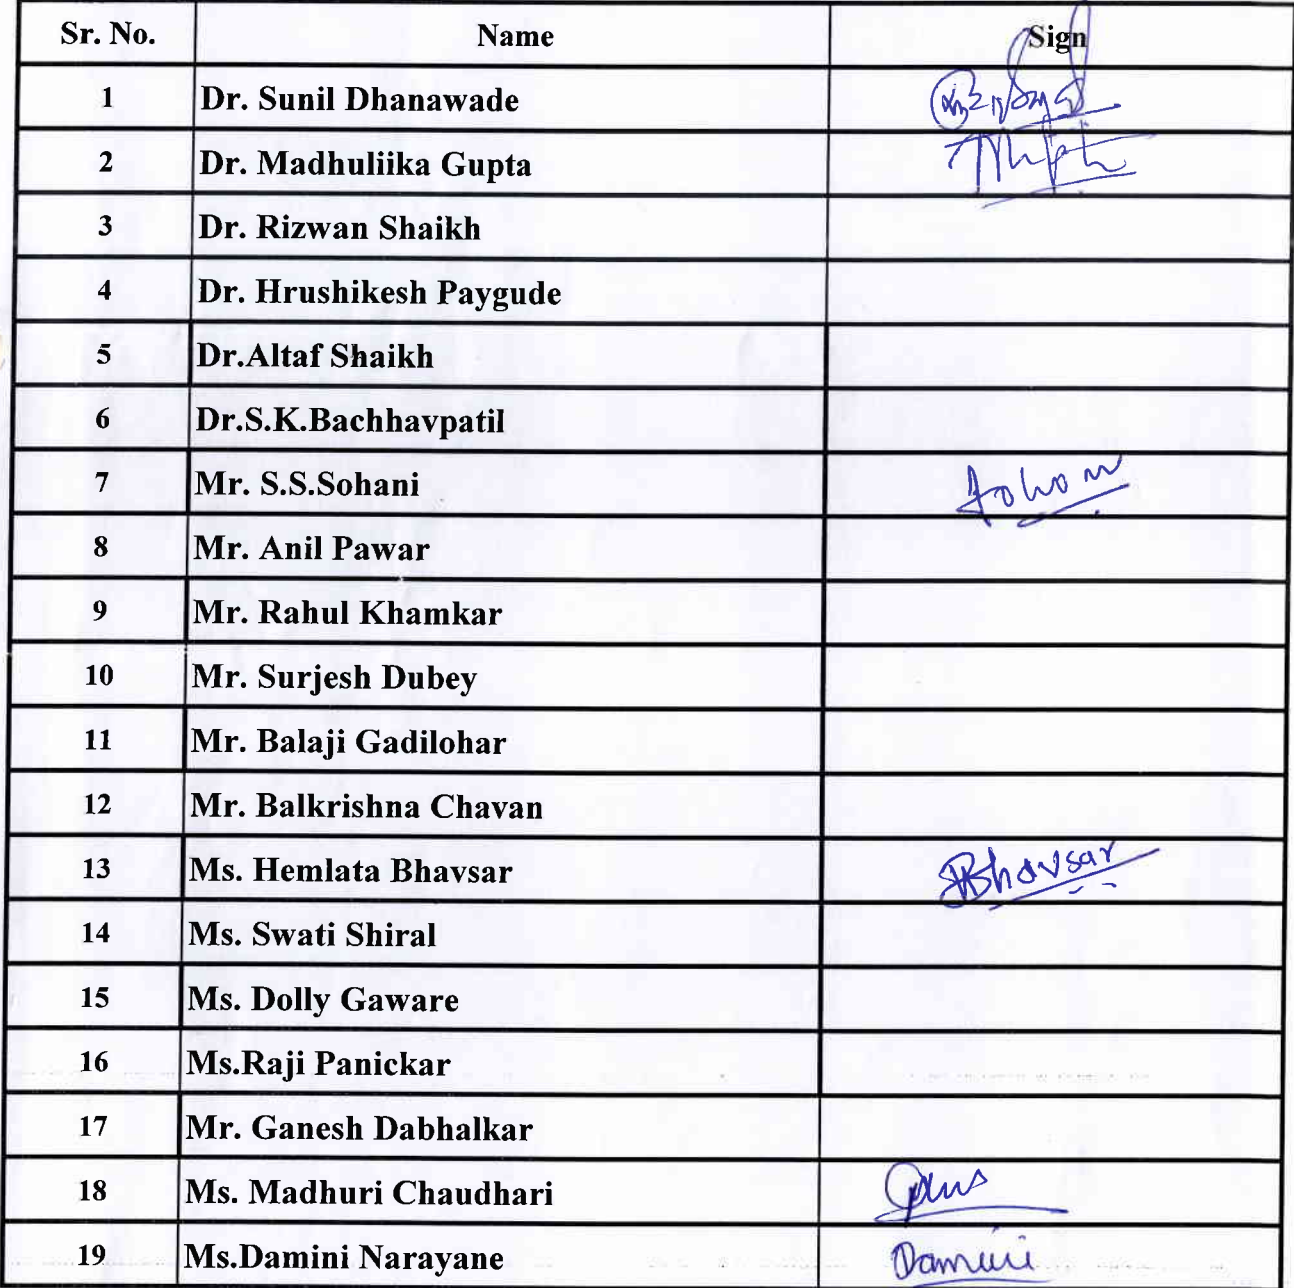 Sr. No. Name Sign
1 Dr. Sunil Dhanawade
2 Dr. Madhuliika Gupta
3 Dr. Rizwan Shaikh
4 Dr. Hrushikesh Paygude
5 Dr.Altaf Shaikh
6 Dr.S.K.Bachhavpatil
7 Mr. S.S.Sohani
8 Mr. Anil Pawar
9 Mr. Rahul Khamkar
10 Mr. Surjesh Dubey
11 Mr. Balaji Gadilohar
12 Mr. Balkrishna Chavan
13 Ms. Hemlata Bhavsar HBhavsar
14 Ms. Swati Shiral
15 Ms. Dolly Gaware
16 Ms.Raji Panickar
17 Mr. Ganesh Dabhalkar
18 Ms. Madhuri Chaudhari
19 Ms.Damini Narayane Damini